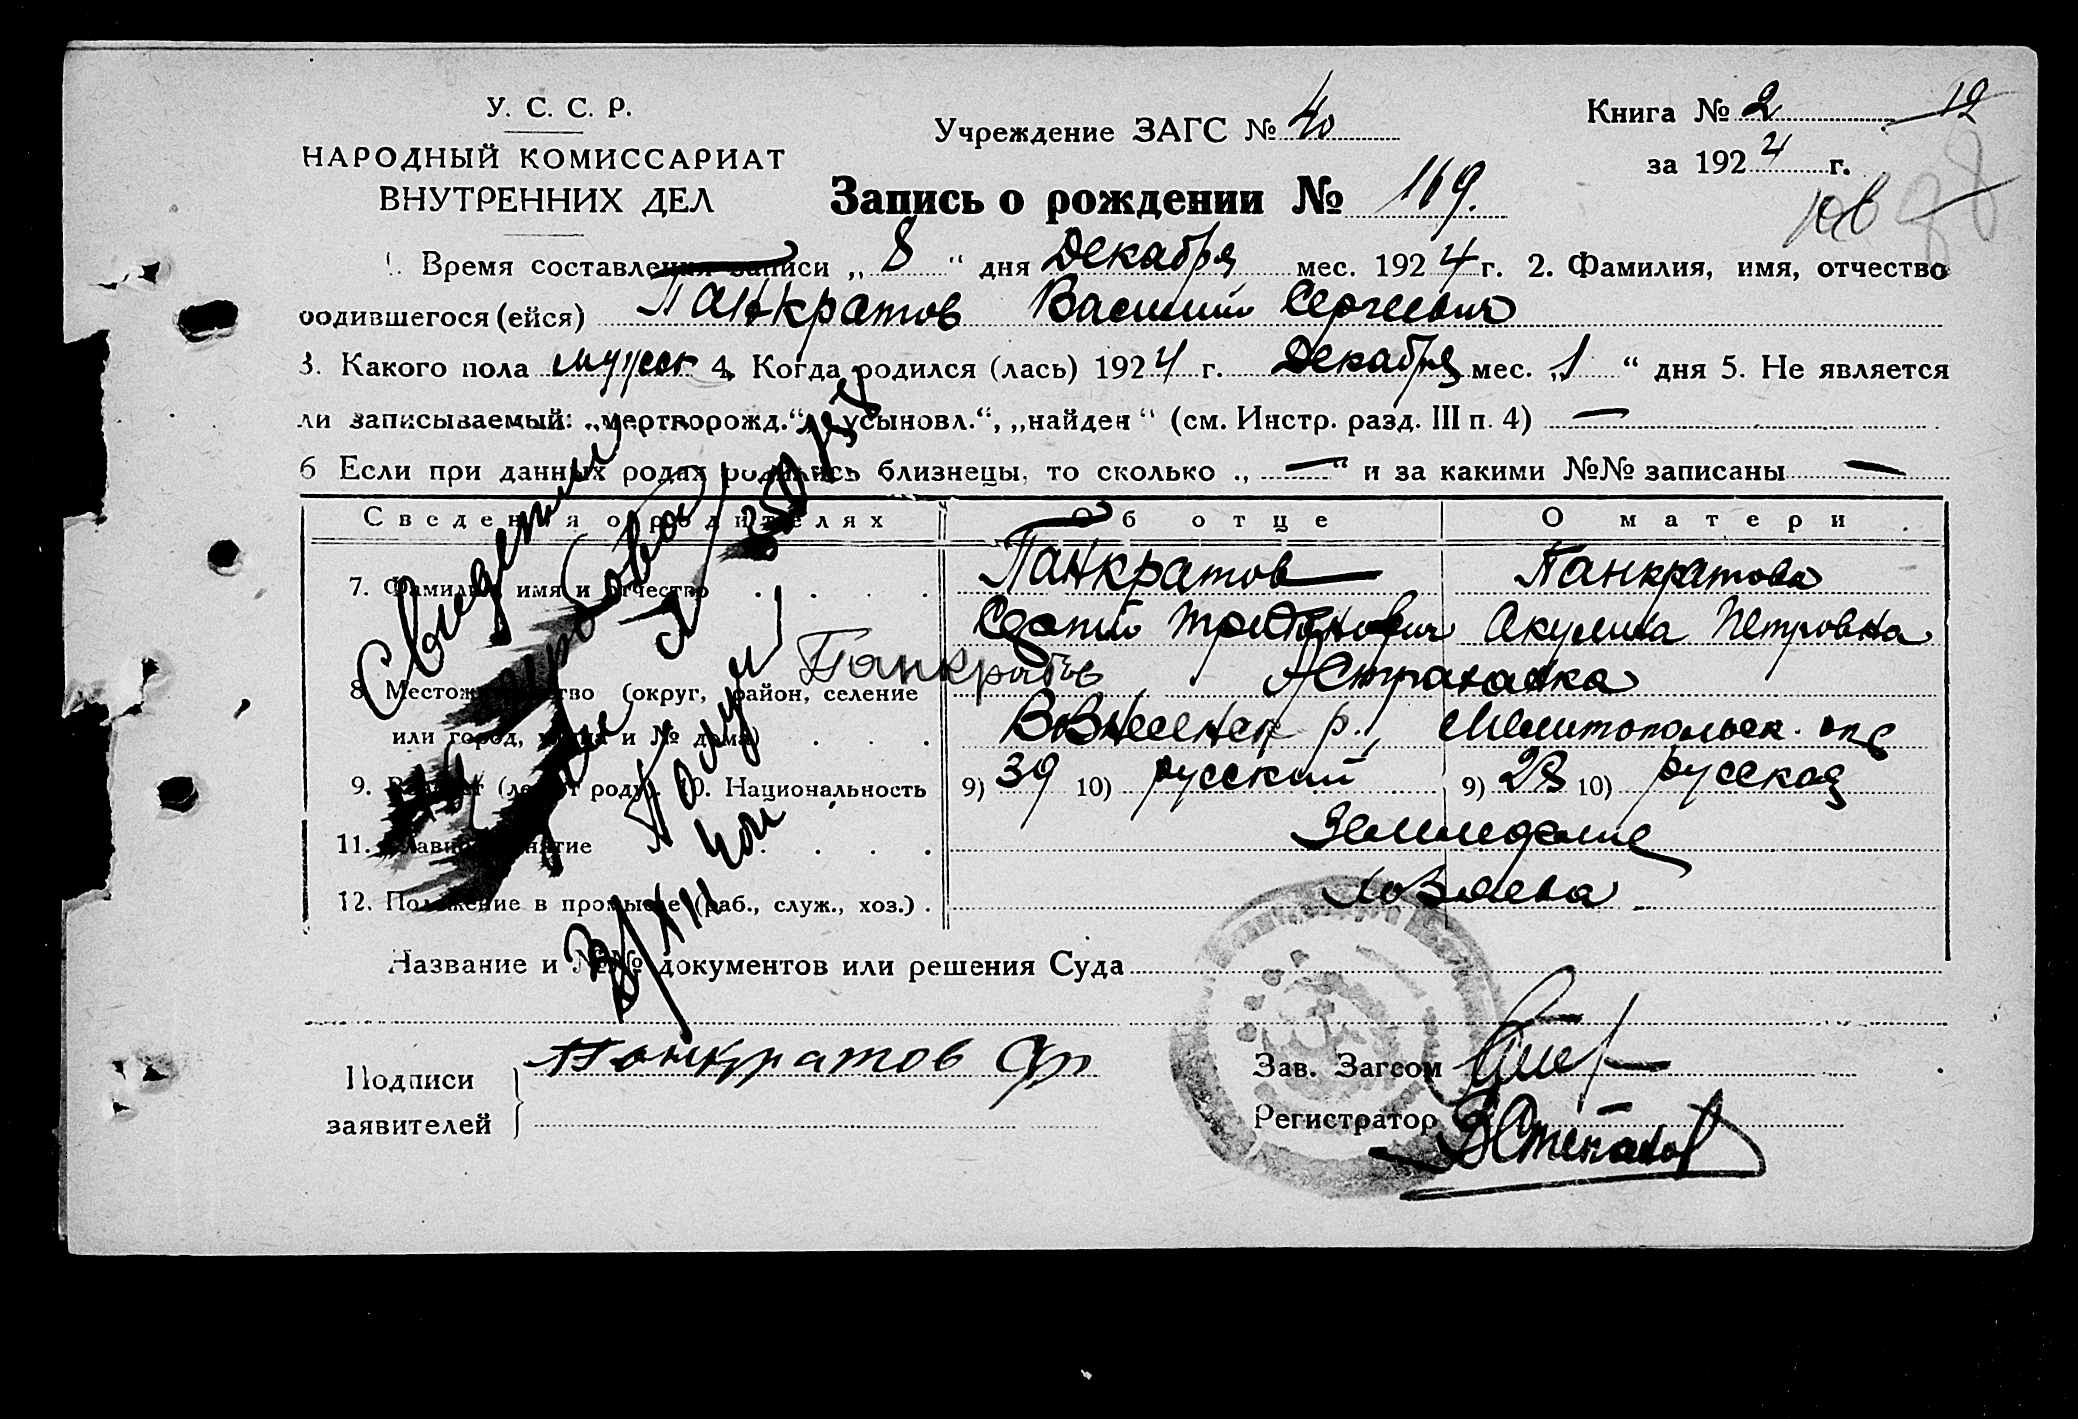 У. С. С. Р.
НАРОДНЫЙ КОМИССАРИАТ
ВНУТРЕННИХ ДЕЛ
Учреждение ЗАГС № 40
Книга № 2
12
за 1924 г.
Запись о рождении № 169.
1. Время составления записи „ 8 “ дня Декабря мес. 1924 г. 2. Фамилия, имя, отчество
родившегося (ейся) Панкратов Василий Сергеевич
3. Какого пола мужск 4. Когда родился (лась) 1924 г. Декабря мес. „1 “ дня 5. Не является
ли записываемый: „мертворожд.“, „усыновл.“, „найден“ (см. Инстр. разд. III п. 4) —
6 Если при данных родах родились близнецы, то сколько „ — “ и за какими №№ записаны —
Сведения о родителях Об отце О матери
7. Фамилия, имя и отчество Панкратов Панкратова
Трифанович Акулина Петровна
Панкратов
8. Местожительство (округ, район, селение Астраханка
или город, улица и № дома) Вознесенск р., Мелитопольск. окр
9. Возраст (лет от роду). 10. Национальность 9) 39 10) русский 9) 28 10) русская
11. Главное занятие Земледелие
12. Положение в промысле (раб., служ., хоз.) хозяева
Название и №№ документов или решения Суда
Подписи
заявителей
Панкратов
Зав. Загсом
Регистратор Степанов